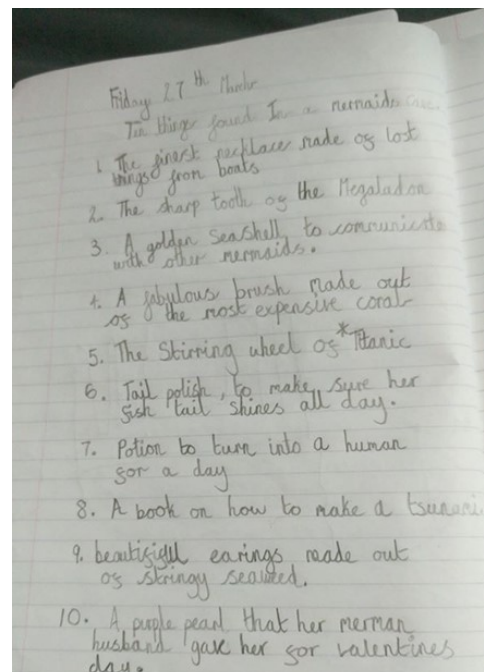 Friday 27th March
Ten things found In a mermaids cave
1. The finest necklace made of lost
things from boats
2. The sharp tooth of the Megaladon
3. A golden seashell, to communicate
with other mermaids.
4. A fabulous brush made out
of the most expensive coral
5. The Stirring wheel of *Titanic
6. Tail polish, to make sure her
fish tail shines all day.
7. Potion to turn into a human
for a day
8. A book on how to make a tsunami
9. beautifull earings made out
of stringy seaweed.
10. A purple pearl that her merman
husband gave her for valentines
day.